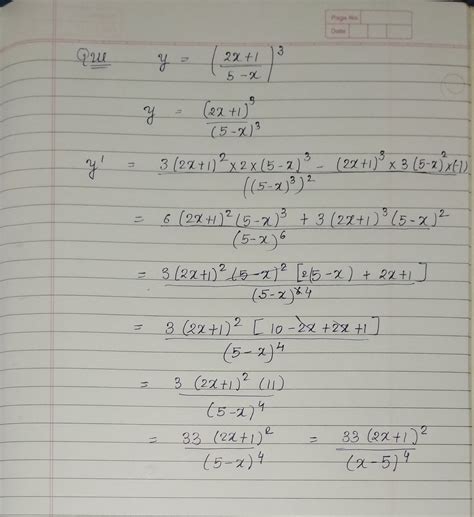 Page No.
Date
Que y = ((2x+1)/(5-x))^3
y = (2x+1)^3/(5-x)^3
y' = (3(2x+1)^2 x 2 x (5-x)^3 - (2x+1)^3 x 3(5-x)^2 x (-1))/((5-x)^3)^2
= (6(2x+1)^2 (5-x)^3 + 3(2x+1)^3 (5-x)^2)/(5-x)^6
= (3(2x+1)^2 (5-x)^2 [2(5-x) + 2x+1])/(5-x)^6 4
= (3(2x+1)^2 [10-2x+2x+1])/(5-x)^4
= (3(2x+1)^2 (11))/(5-x)^4
= (33(2x+1)^2)/(5-x)^4 = (33(2x+1)^2)/(x-5)^4